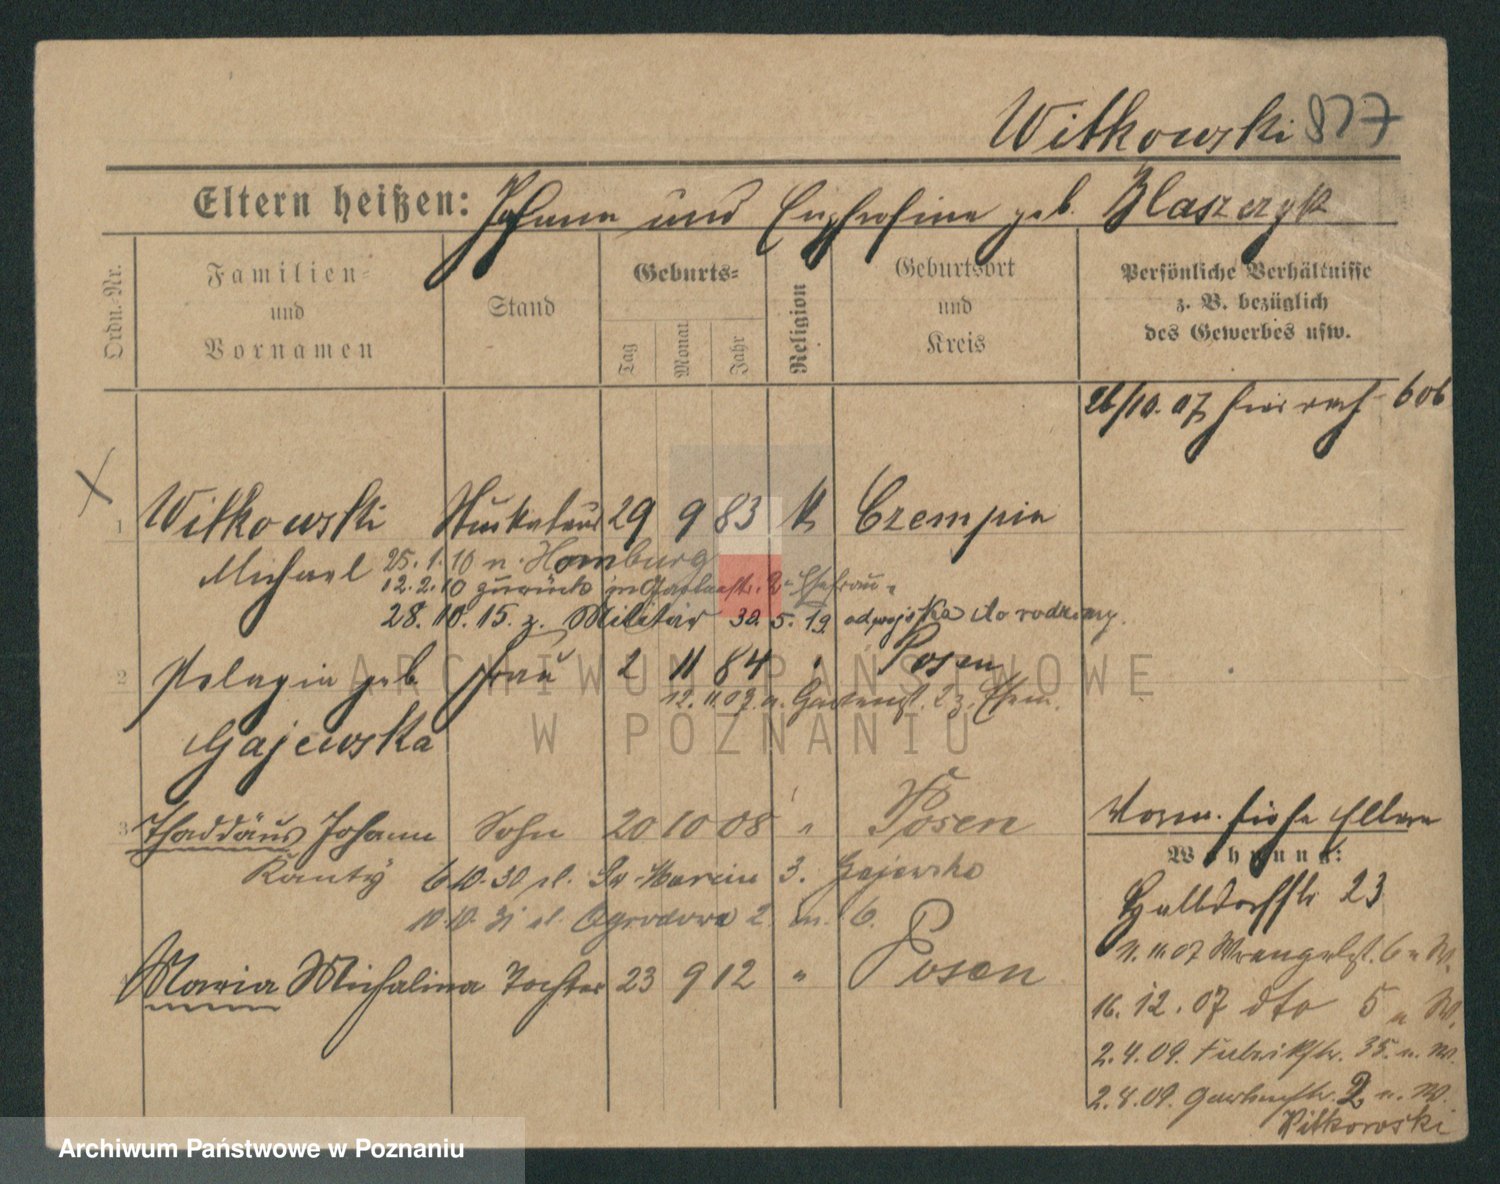 Witkowski 877
Eltern heißen: Johann und Euphrosina geb. Blaszczyk
Ordn.-Nr.
Familien-
und
Vornamen
Stand
Geburts-
Tag
Monat
Jahr
Religion
Geburtsort
und
Kreis
Persönliche Verhältnisse
z. B. bezüglich
des Gewerbes usw.
26/10.07
1 Witkowski 29 9 83 k Czempin
Michael 25.1.10 n. Homburg
12.2.10 zurück in Gartenstr. 2 Ehefrau
28.10.15. z. Militär 30.5.19 od wojska do rodziny.
2 Pelagia geb. Frau 2 11 84 " Posen
12.11.07 n. Gartenst. 2 z. Ehem.
Gajewska
3 Thaddäus Johann Sohn 20 10 08 " Posen
Kanty 6.10.30 ul. Św. Marcin 3. Gajewska
10.10.31 ul. Ogrodowa 2 m. 6.
Maria Michalina Tochter 23 9 12 " Posen
Vorm. siehe Eltern
Wohnung:
Halldorfstr 23
11.11.07 Wrangelst. 6 n W.
16.12.07 dto 5 n W.
2.4.09. Fabrikstr. 35. n. W.
2.8.09. Gartenstr. 2 n. W.
Witkowski
ARCHIWUM PAŃSTWOWE
W POZNANIU
Archiwum Państwowe w Poznaniu